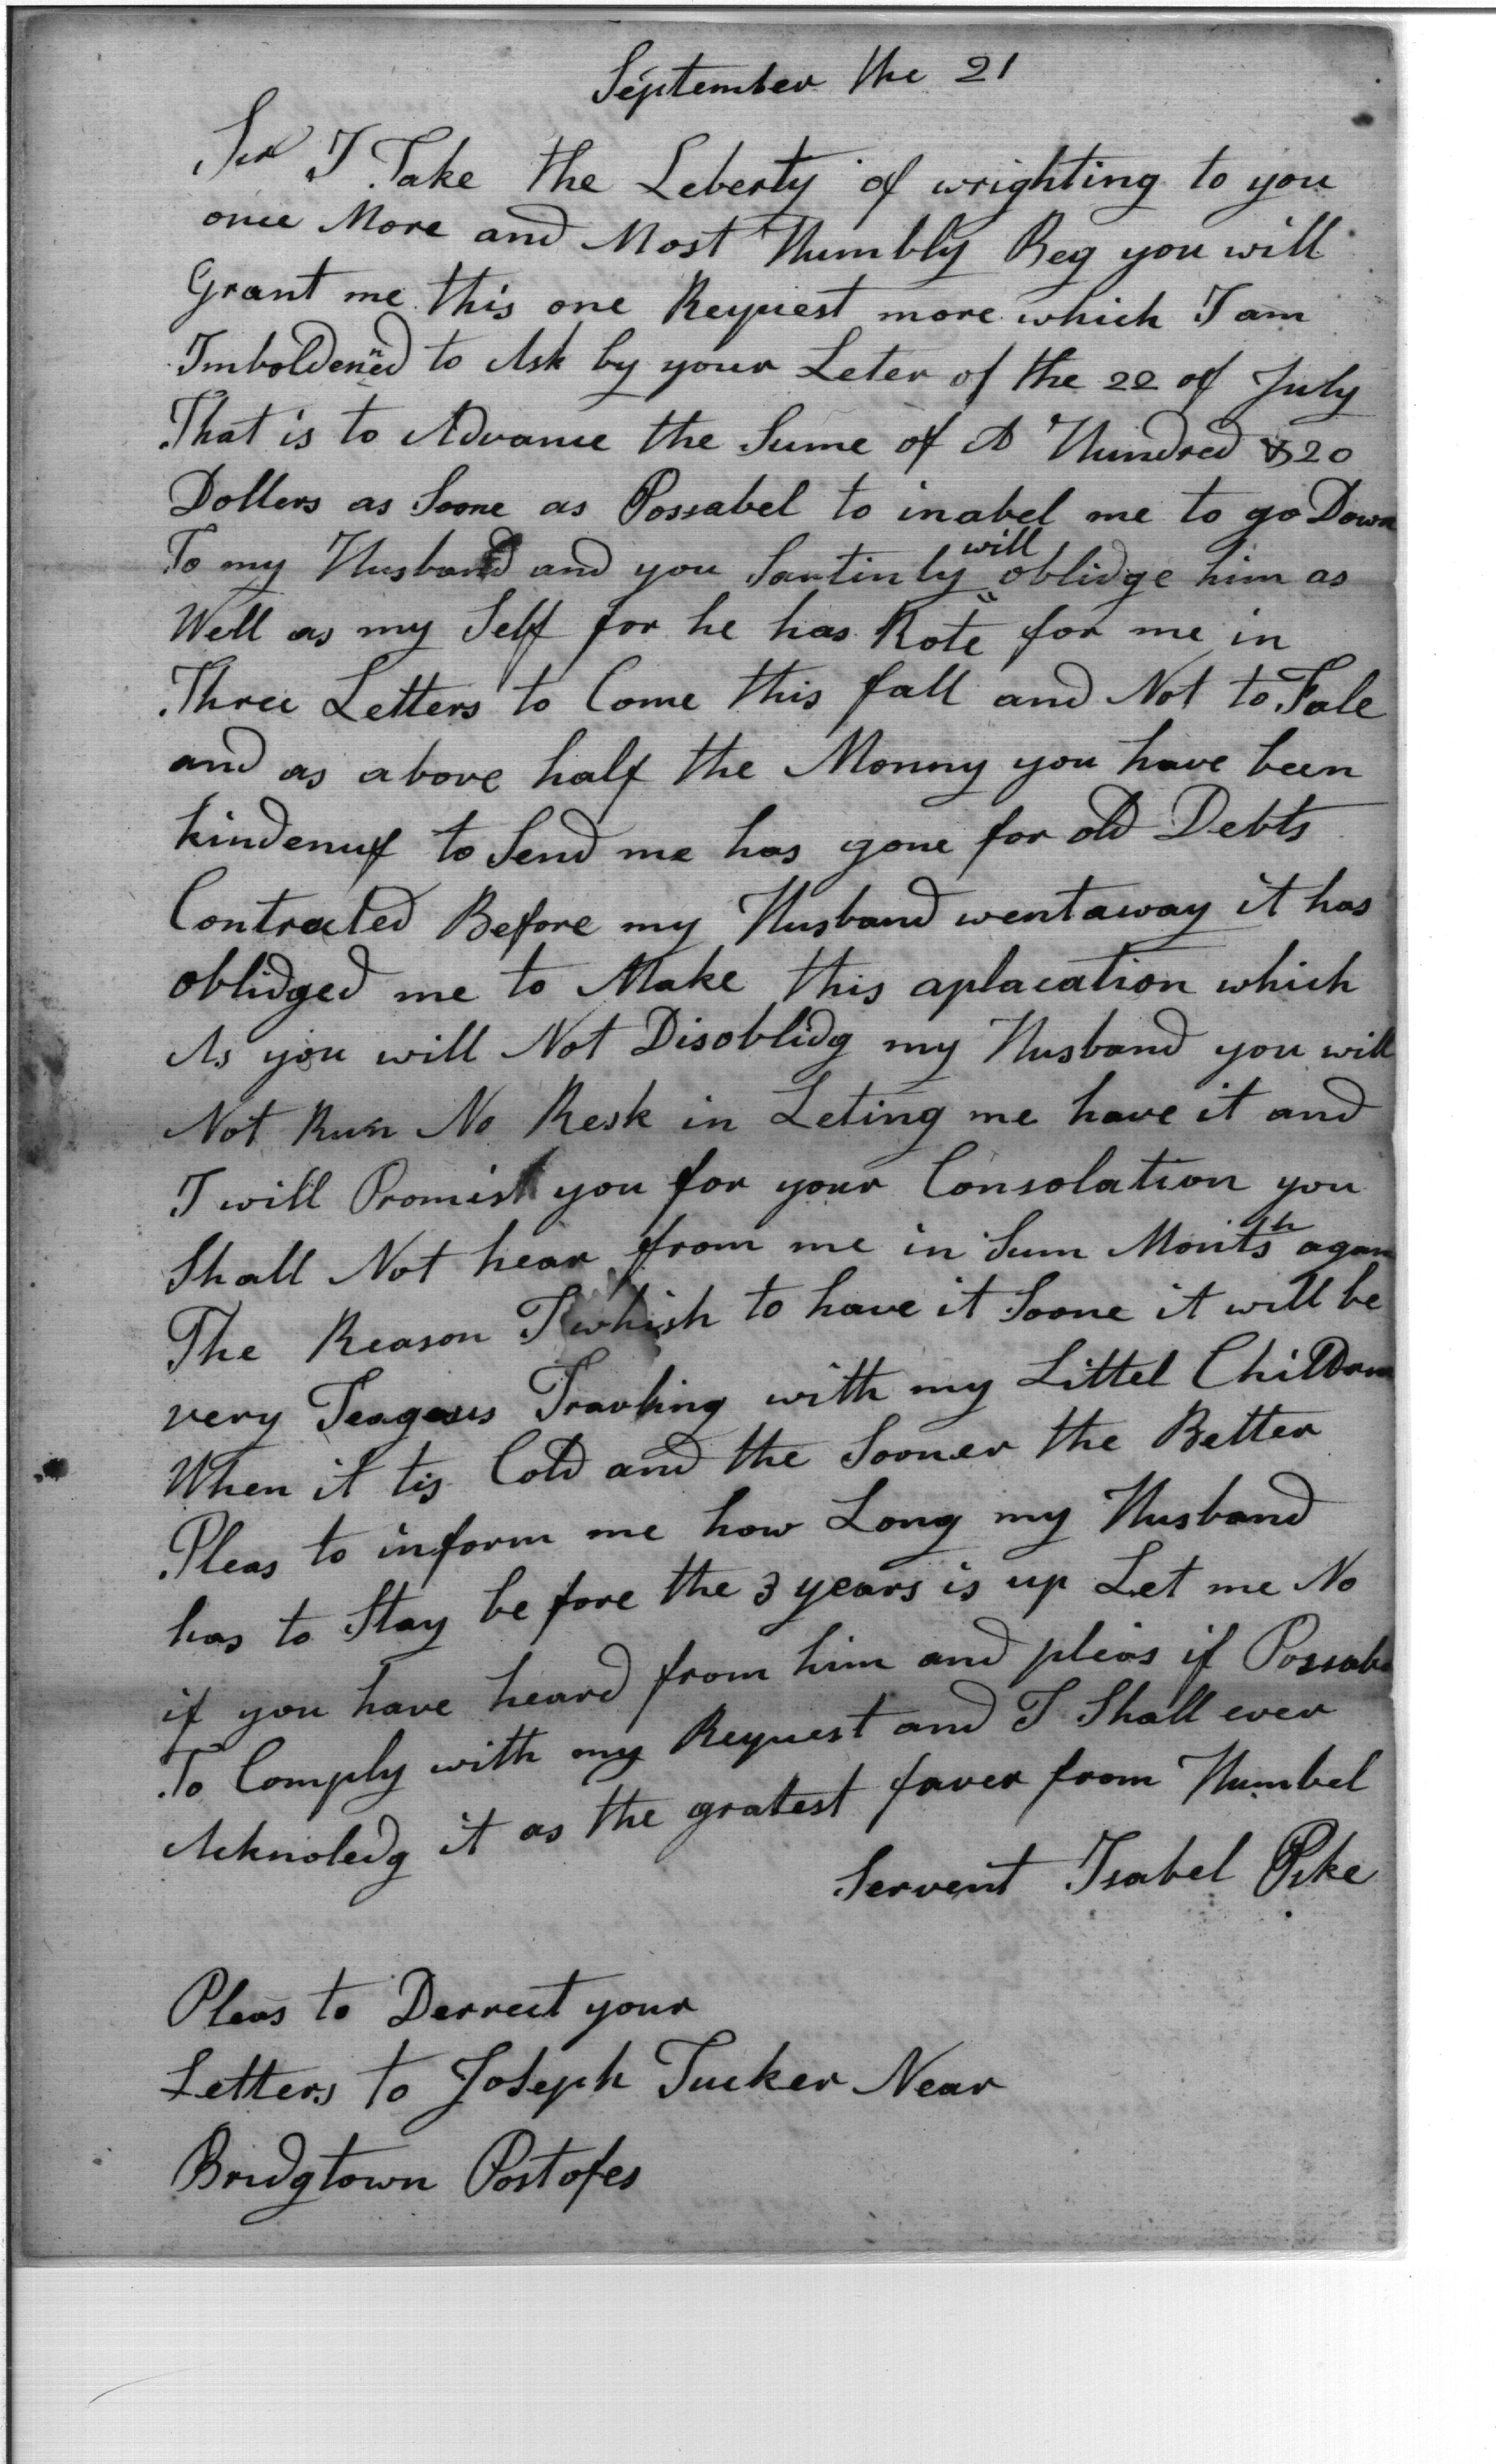 September the 21
Sir I Take the Leberty of wrighting to you
once More and Most Humbly Beg you will
Grant me this one Request more which I am
Imboldened to Ask by your Leter of the 22 of July
That is to Advance the Sume of A Hundred & 20
Dollers as Soone as Possabel to inabel me to go Down
To my Husband and you Sartinly will oblidge him as
Well as my Self for he has Rote for me in
Three Letters to Come this fall and Not to Fale
and as above half the Monny you have been
kindenuf to Send me has gone for old Debts
Contracted Before my Husband went away it has
oblidged me to Make this aplacation which
As you will Not Disoblidg my Husband you will
Not Run No Resk in Leting me have it and
I will Promist you for your Consolation you
Shall Not hear from me in Sum Months agan
The Reason I whish to have it Soone it will be
very Teagous Travling with my Littel Children
When it tis Cold and the Sooner the Better
Pleas to inform me how Long my Husband
has to Stay before the 3 years is up Let me No
if you have heard from him and pleas if Possabe
To Comply with my Request and I Shall ever
Acknoledg it as the gratest faver from Humbel
Servent Isabel Pike
Pleas to Derrect your
Letters to Joseph Tucker Near
Bridgtown Postofes